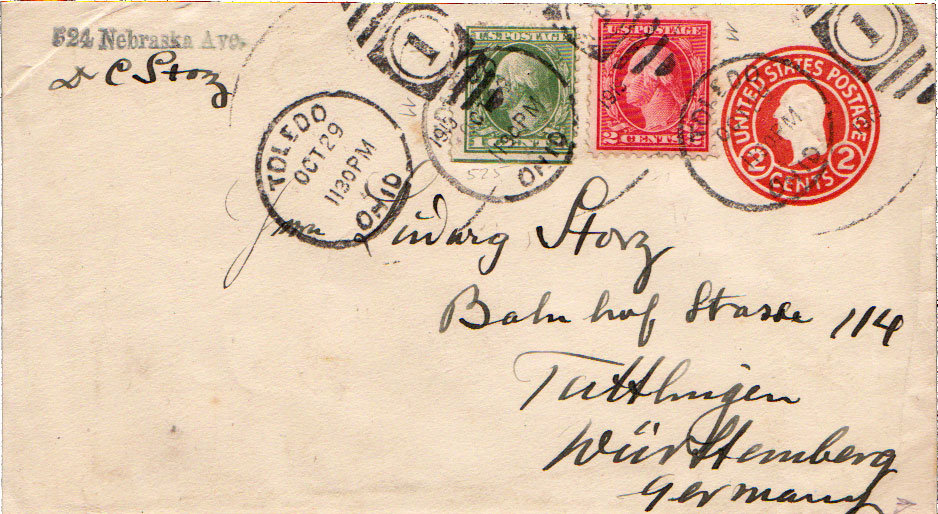 524 Nebraska Ave.
Dr C Storz
TOLEDO
OCT 29
1130 PM
OHIO
1
1915
1130 PM
OHIO
U.S. POSTAGE
1 CENT 1
U.S. POSTAGE
2 CENTS 2
1
UNITED STATES POSTAGE
2 CENTS 2
TOLEDO
PM
OHIO
525
Ludwig Storz
Bahnhof Strasse 114
Tuttlingen
Württemberg
Germany